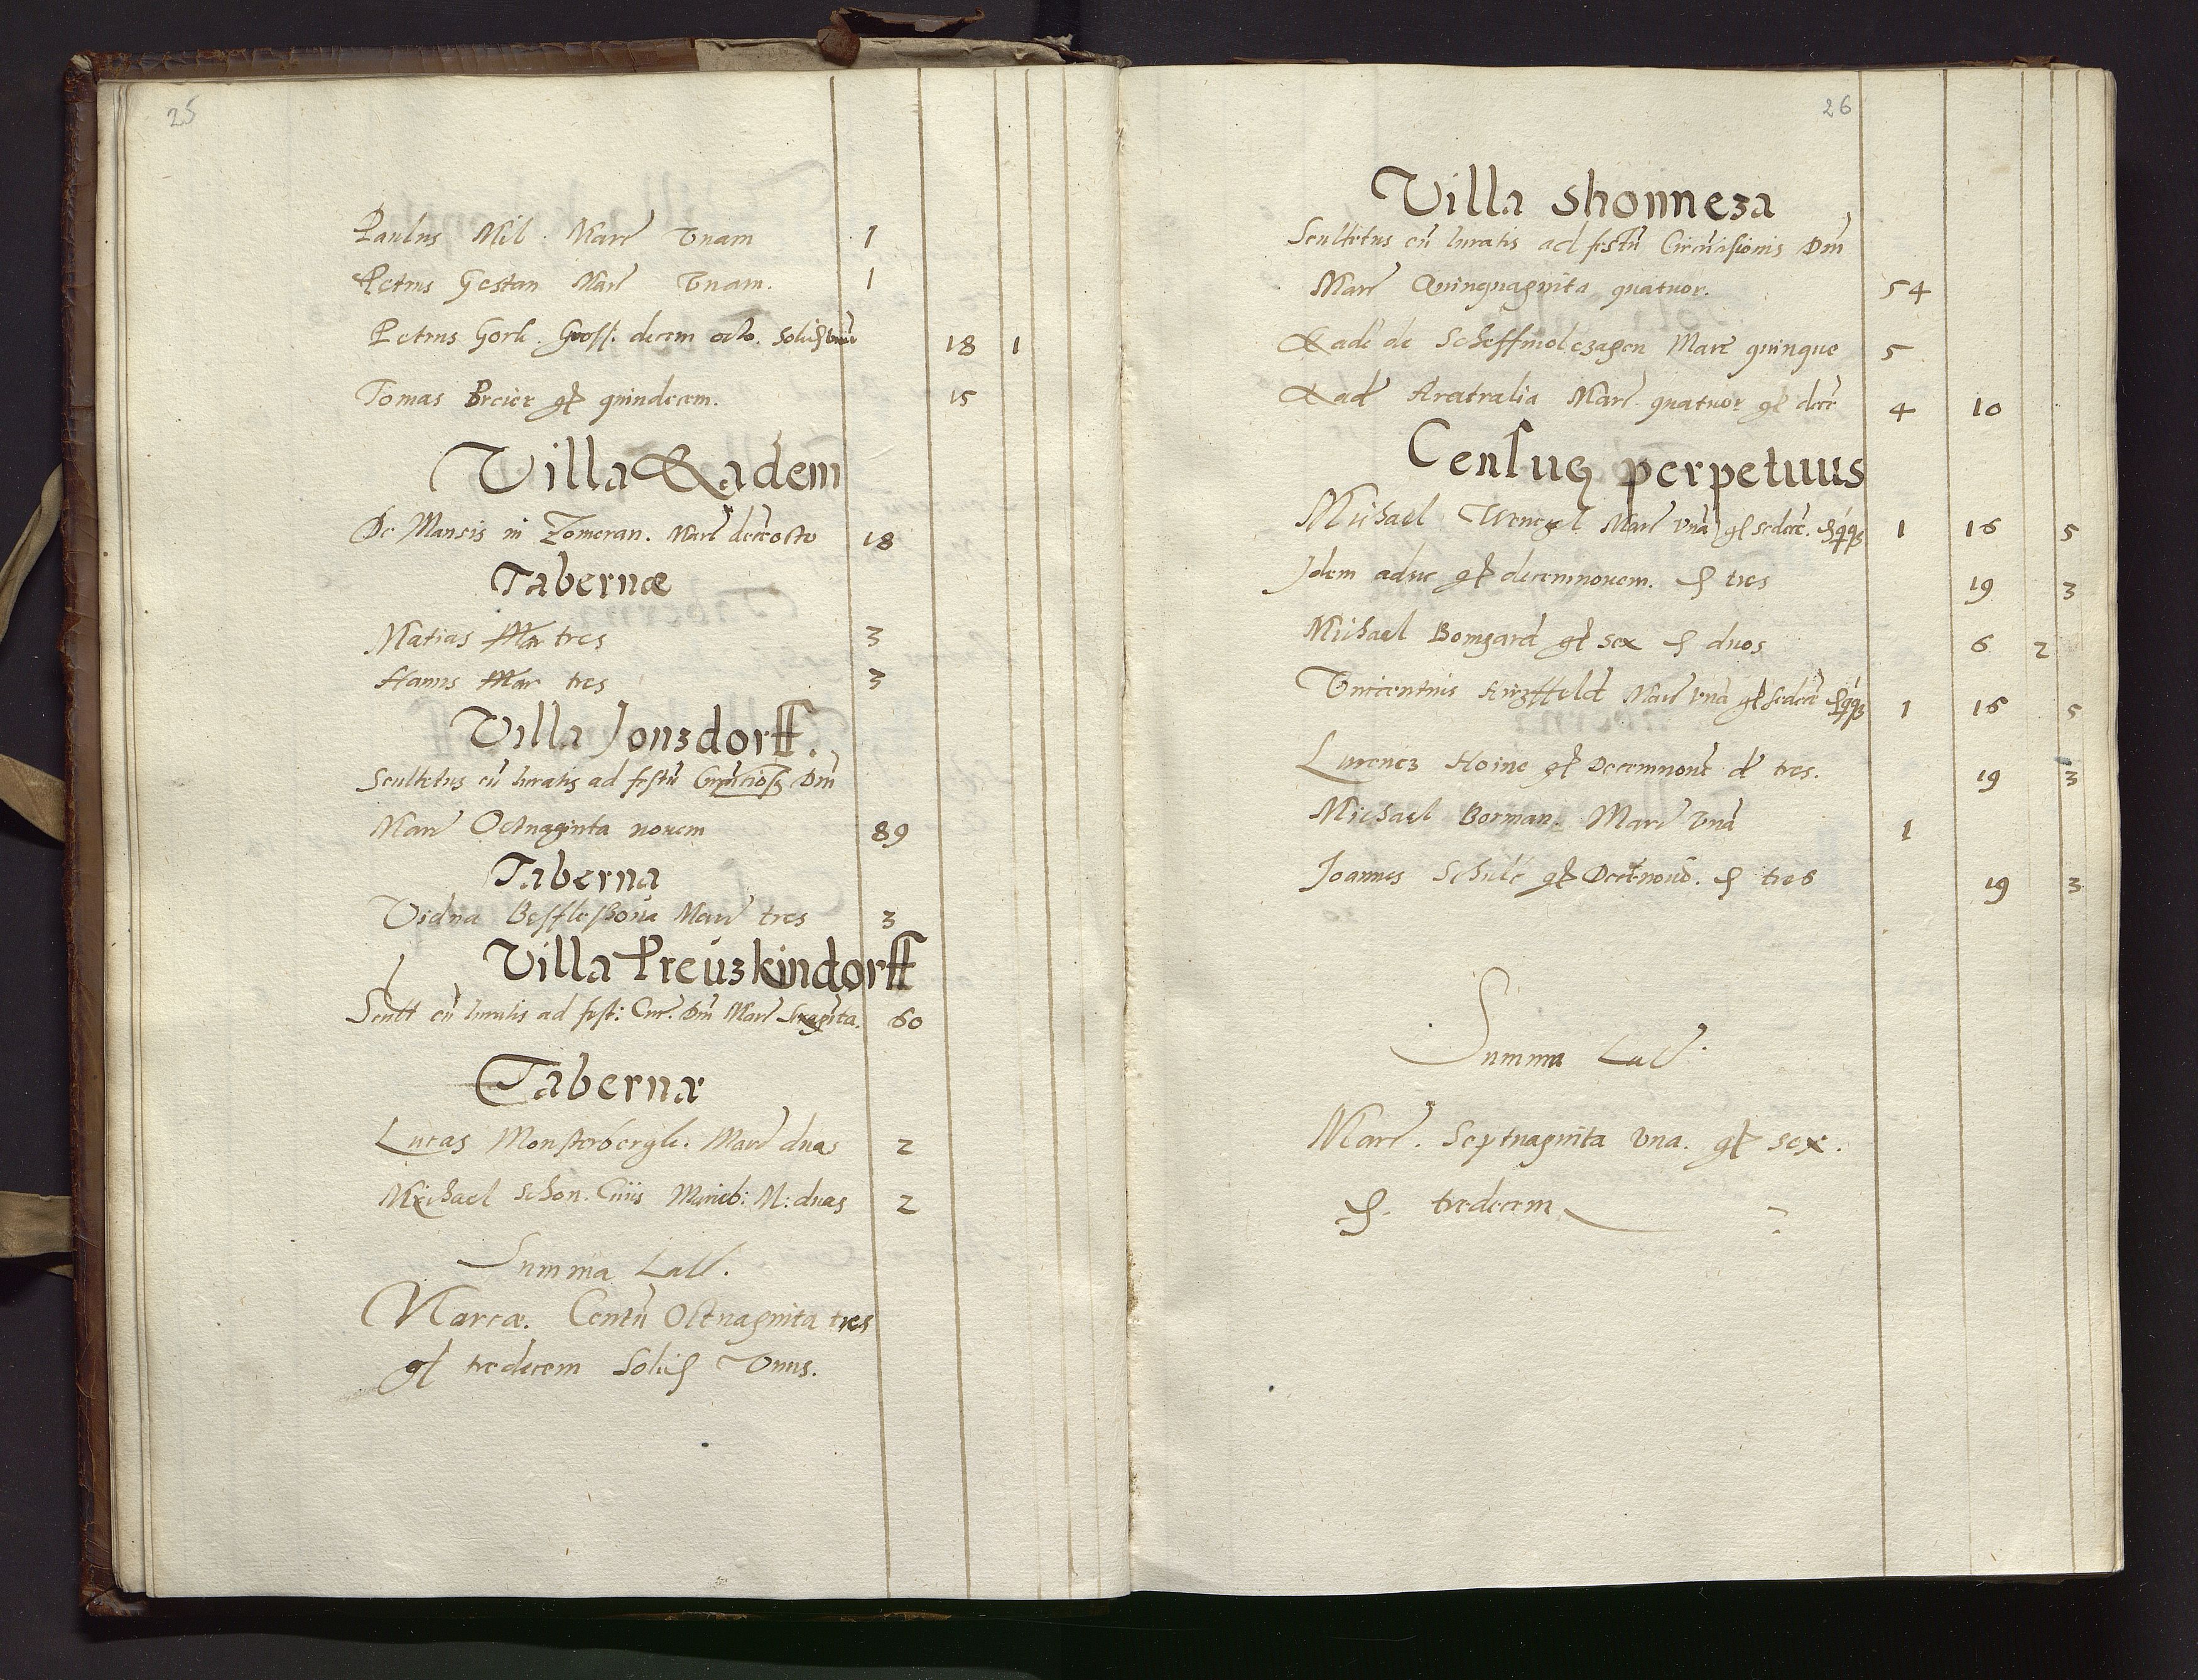 25
Paulus Mil. Marc̃ Vnam 1
Petrus Gestan Marc̃ Vnam. 1
Petrus Gorl. Gross. decem octo. Solid vnũ 18 1
Tomas Breier gſ quindecem. 15
Villa Eadem
De Mansis in Zomeran. Marc̃ decẽ octo 18
Tabernæ
Matias Mar tres 3
Hanns Mar tres 3
Villa Jonsdorff.
Scultetus cũ Iuratis ad festũ Dnĩ
Marc̃ Octuaginta novem 89
Taberna
Vidua Marc̃ tres 3
Villa Preuskindorff
Scult cũ Iuratis ad fest: Circ. Dnĩ Marc̃ Sexaginta. 60
Tabernæ
Lucas Monsterbergk. Marc̃ duas 2
Michael Schon. Ciuis Marieb: M: duas 2
Summa Lat̃.
Marcæ. Centũ Octuaginta tres
gſ tredecem Solid Vnus.
26
Villa Shonneza
Scultetus cũ Iuratis ad festũ Circũcisionis Dnĩ
Marc̃ Quinquaginta quatuor. 54
Eadẽ de Scheffmolczagen Marc̃ quinque 5
Eadẽ Aratralia Marc̃ quatuor gſ decẽ 4 10
Censuq perpetuus
Michael Wenczel Marc̃ vnã gſ sedecẽ. 1 16 5
Idem adhuc gſ decemnovem. ₰ tres 19 3
Michael Bomgard gſ sex ₰ duos 6 2
Vincentius Hirzffeld Marc̃ vnã gſ sedecẽ 1 16 5
Lurencz Hoine gſ Decemnovẽ d tres. 19 3
Michael Borman. Marc̃ Vnã 1
Joannes Schulc̃ gſ Decẽnovẽ. ₰ tres 19 3
Summa Lat̃.
Marc̃. Septuaginta vna. gſ sex.
₰. tredecem